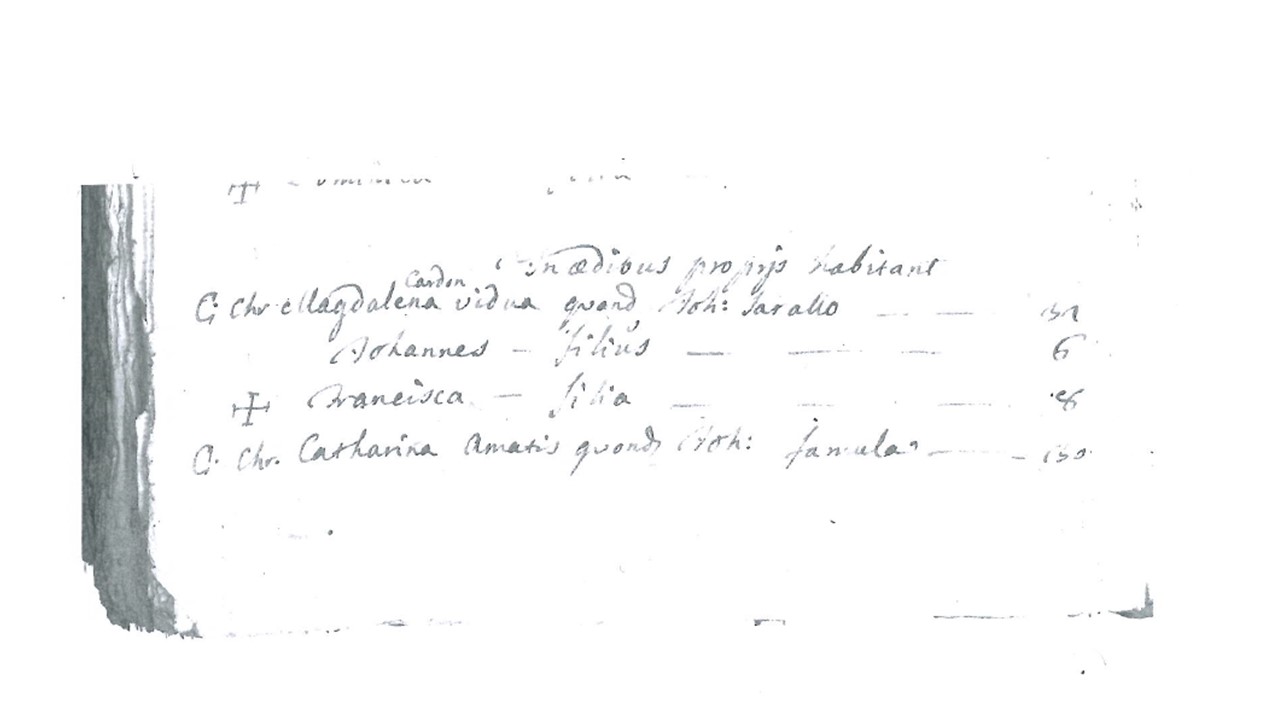 In ædibus proprijs habitant
Cardon
C. Chr. Magdalena vidua quond Joh: Sarallo
Johannes — filius — — — 6
Francisca — filia — — — 8
C. Chr. Catharina Amatis quond Joh: famula —